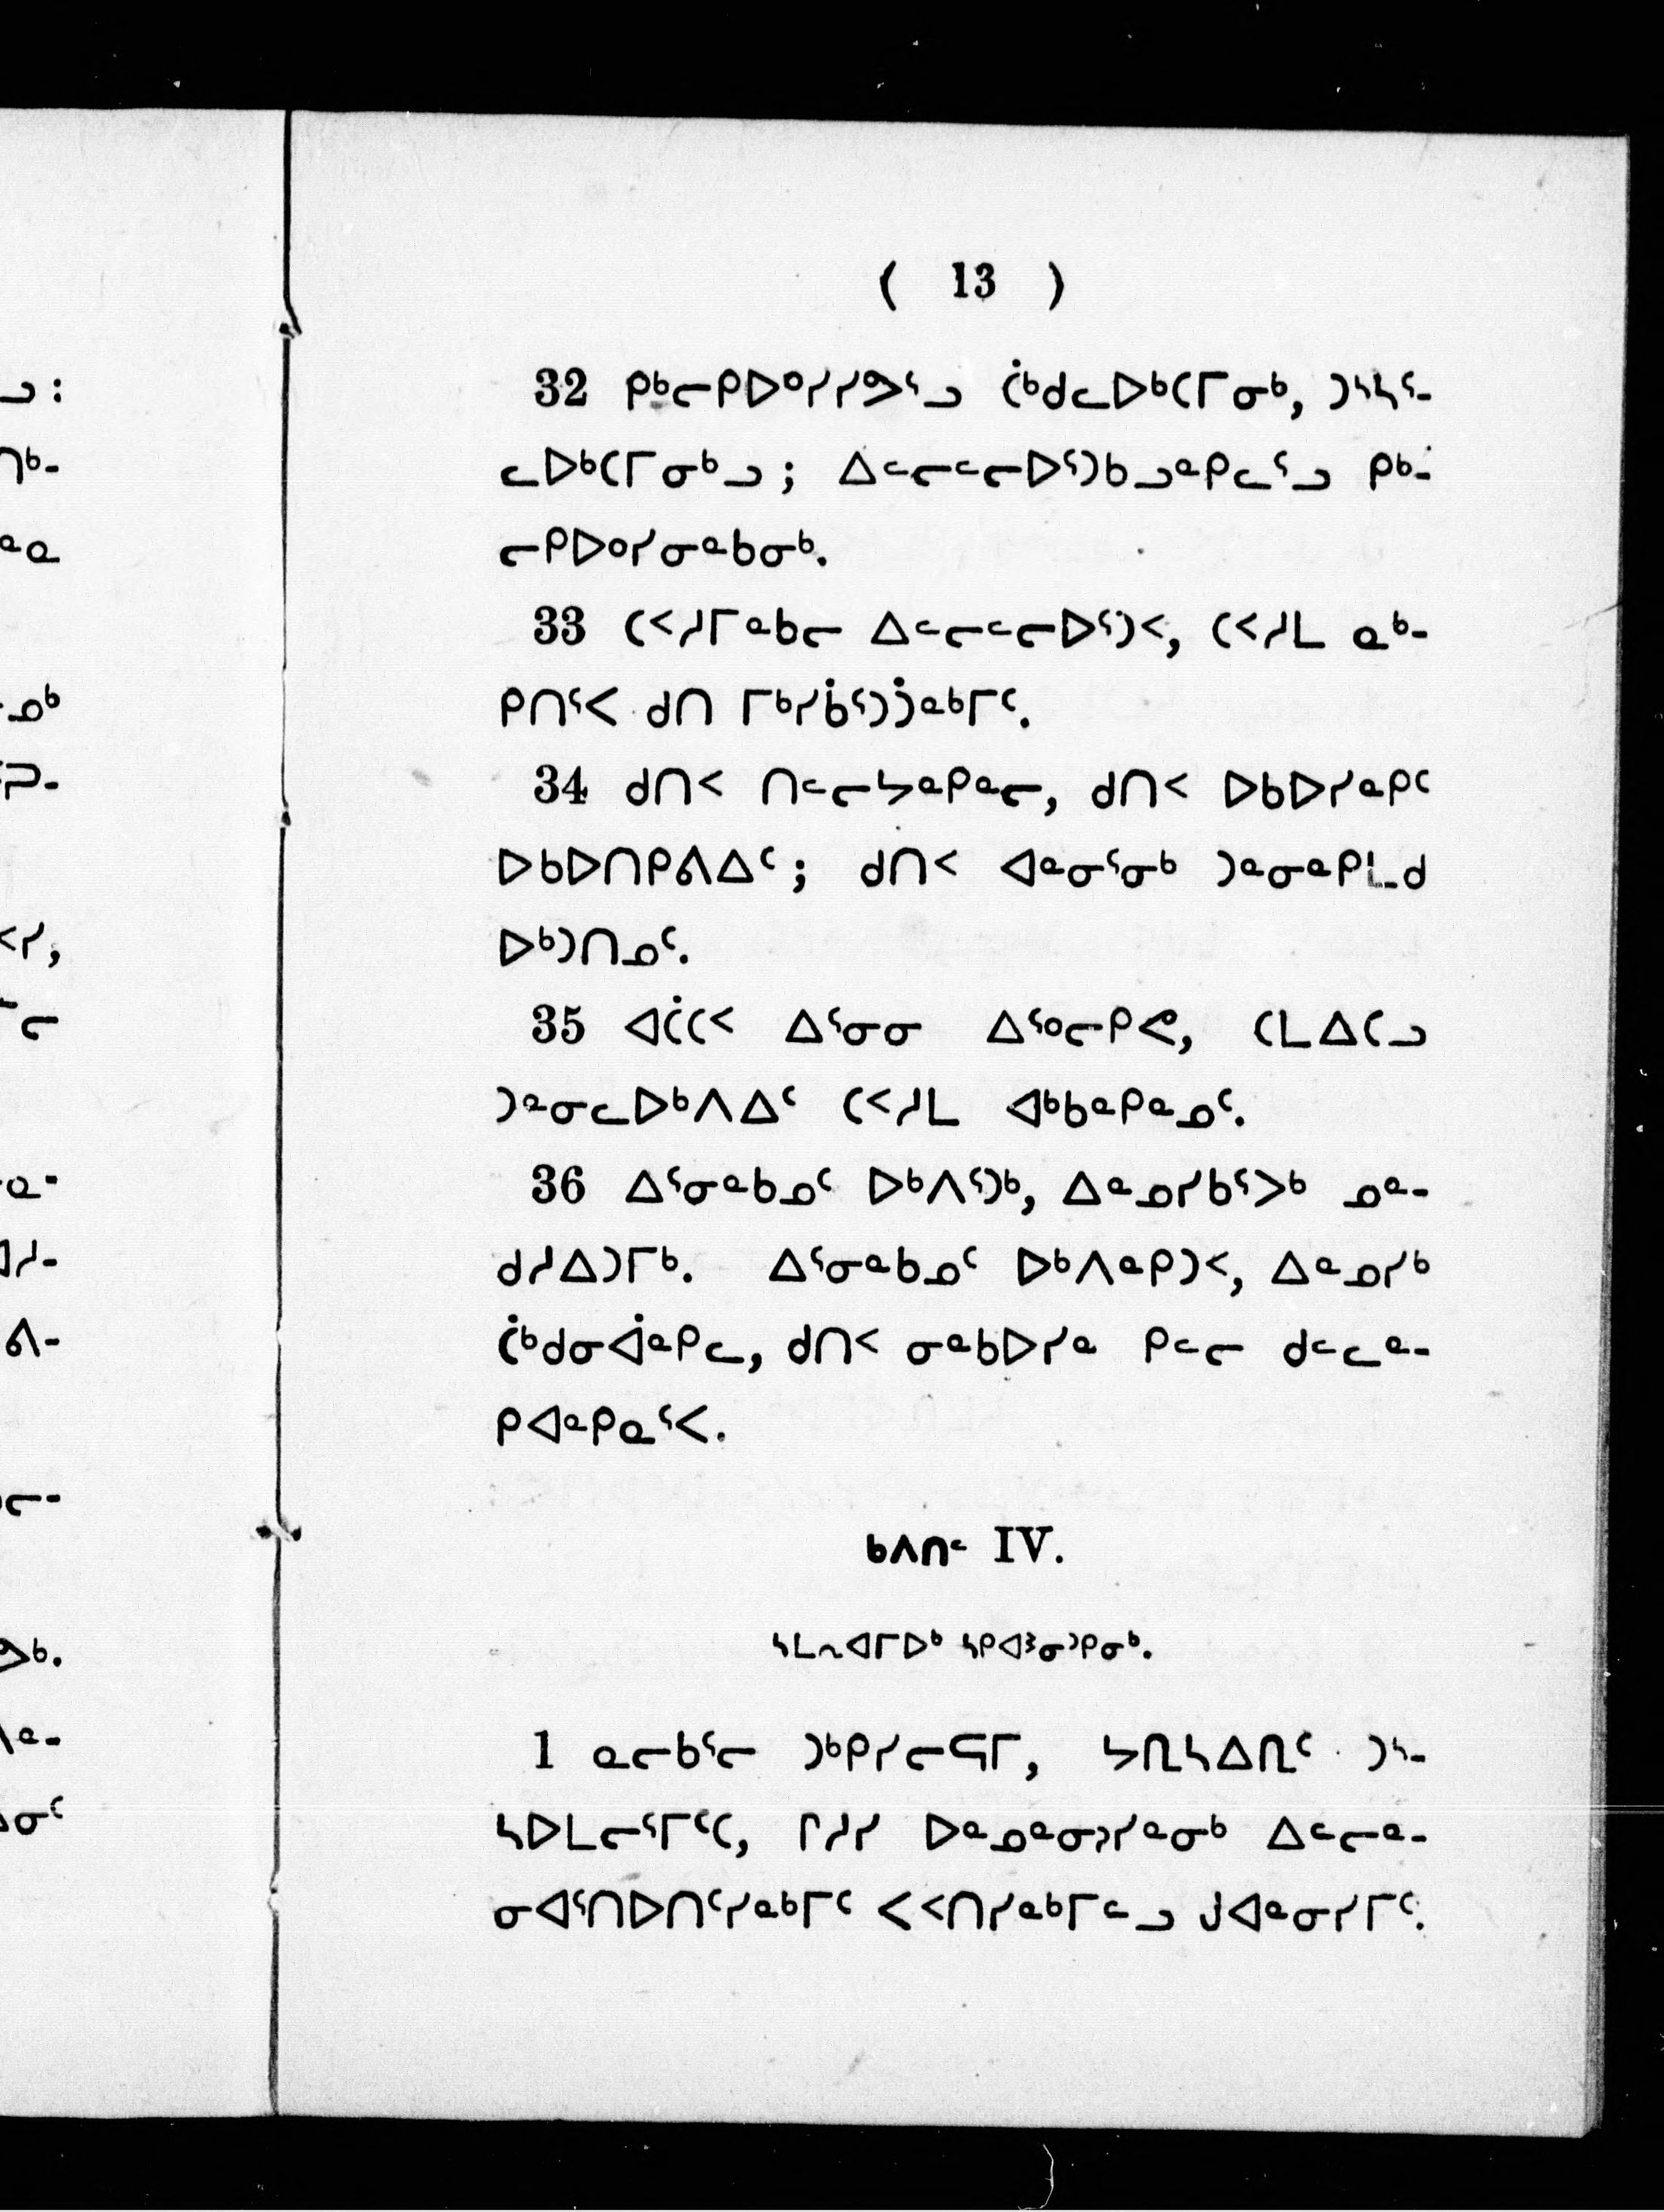 ( 13 )
32 ᑭᒃᓕᑭᐅᐤᓯᓯᕗᕐᓗ ᑖᒃᑯᓚᐅᒃᑕᒥᓂᒃ, ᑐᔅᓴᕐ-
ᓚᐅᒃᑕᒥᓂᒃᓗ; ᐃᓪᓕᓪᓕᐅᕐᑐᑲᓗᓐᑭᓚᕐᓗ ᑭᒃ-
ᓕᑭᐅᐤᓯᓂᓐᑲᓂᒃ.
33 ᑕᑉᓱᒥᓐᑲᓕ ᐃᓪᓕᓪᓕᐅᕐᑐᑉ, ᑕᑉᓱᒪ ᓇᒃ-
ᑭᑎᕐᐸ ᑯᑎ ᒥᒃᓯᑳᕐᑐᑑᓐᒃᒥᑦ.
34 ᑯᑎᑉ ᑎᓪᓕᔭᓐᑭᓐᓕ, ᑯᑎᑉ ᐅᑲᐅᓯᓐᑭᑦ
ᐅᑲᐅᑎᑭᕕᐃᑦ; ᑯᑎᑉ ᐊᓐᓂᕐᓂᒃ ᑐᓐᓂᓐᑭᒪᑯ
ᐅᒃᑐᑎᓄᑦ.
35 ᐊᑖᑕᑉ ᐃᕐᓂᓂ ᐃᕐᐤᓕᑭᕙ, ᑕᒪᐃᑕᓗ
ᑐᓐᓂᓚᐅᒃᐱᐃᑦ ᑕᑉᓱᒪ ᐊᒃᑲᓐᑭᓐᓄᑦ.
36 ᐃᕐᓂᓐᑲᓄᑦ ᐅᒃᐱᕐᑐᒃ, ᐃᓐᓄᓯᑲᕐᐳᒃ ᓄᓐ-
ᑯᓱᐃᑐᒥᒃ. ᐃᕐᓂᓐᑲᓄᑦ ᐅᒃᐱᓐᑭᑐᑉ, ᐃᓐᓄᓯᒃ
ᑖᒃᑯᓂᐋᓐᑭᓚ, ᑯᑎᑉ ᓂᓐᑲᐅᓯᓐ ᑭᓪᓕ ᑯᓪᓚᓐ-
ᑭᐊᓐᑭᓇᕐᐸ.
ᑲᐱᑎᓪ IV.
1 ᓇᓕᑲᕐᓕ ᑐᒃᑭᓯᓕᕋᒥ, ᔭᕆᓴᐃᕆᑦ ᑐᔅ-
ᓴᐅᒪᓕᕐᒥᑦᑕ, ᒋᓱᓯ ᐅᓐᓄᓐᓂᓯᓐᓂᒃ ᐃᓪᓕᓐ-
ᓂᐊᕐᑎᐅᑎᑦᓯᓐᒃᒥᑦ ᐸᑉᑎᓯᓐᒃᒥᓪᓗ ᔫᐊᓐᓂᓯᒥᑦ.